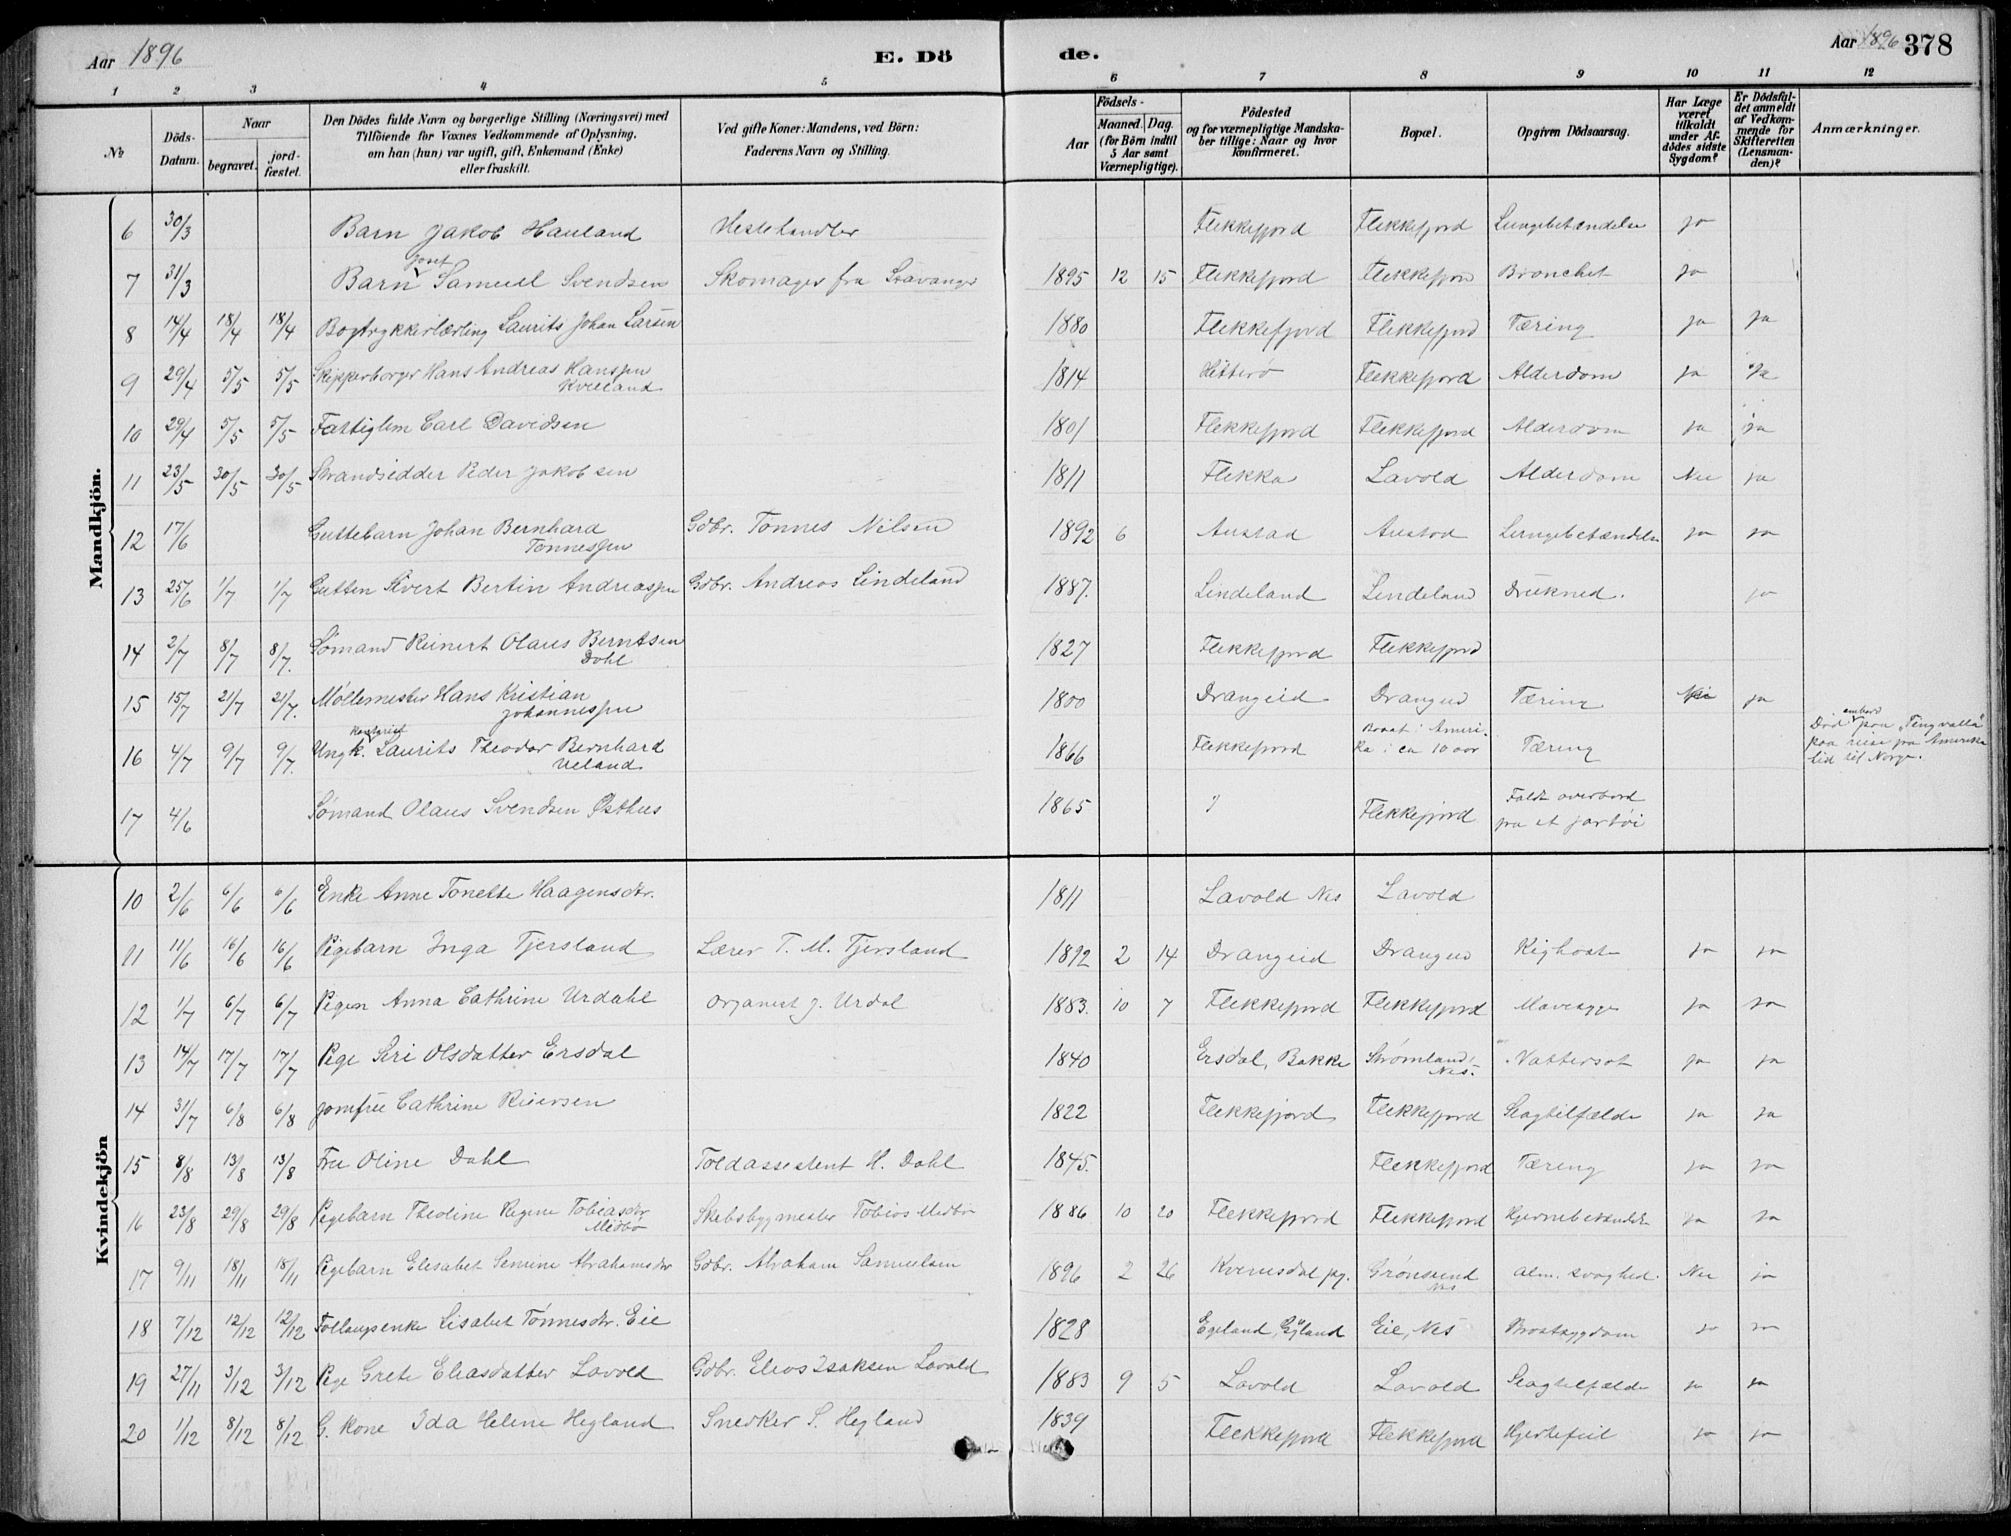 Aar 1896 E. Dö de. Aar 1896 378
1 2 3 4 5 6 7 8 9 10 11 12
№ Döds-Datum. Naar begravet. jord-fæstet. Den Dödes fulde Navn og borgerlige Stilling (Næringsvei) med Tilföiende for Voxnes Vedkommende af Oplysning, om han (hun) var ugift, gift, Enkemand (Enke) eller fraskilt. Ved gifte Koner: Mandens, ved Börn: Faderens Navn og Stilling. Födsels- Aar Maaned. Dag. (for Börn indtil 5 Aar samt Værnepligtige). Födested og for værnepligtige Mandskaber tillige: Naar og hvor konfirmeret. Bopæl. Opgiven Dödsaarsag. Har Læge været tilkaldt under Afdödes sidste Sygdom? Er Dödsfaldet anmeldt af Vedkommende for Skifteretten (Lensmanden)? Anmærkninger.
Mandkjön.
6 30/3 Barn Jakob Hauland Hestehandler Flekkefjord Flekkefjord Lungebetændelse ja
7 31/3 Barn Josef Samuel Svendsen Skomager fra Stavanger 1895 12 15 Flekkefjord Flekkefjord Bronchit ja
8 14/4 18/4 18/4 Bogtrykkerlærling Laurits Johan Larsen 1880 Flekkefjord Flekkefjord Tæring ja ja
9 29/4 5/5 5/5 Skipperborger Hans Andreas Hanssen Kvelland 1814 Hitterø Flekkefjord Alderdom ja ja
10 29/4 5/5 5/5 Fattiglem Carl Davidsen 1801 Flekkefjord Flekkefjord Alderdom ja ja
11 23/5 30/5 30/5 Strandsidder Peder Jakobsen 1811 Flikka Lavold Alderdom Nei ja
12 17/6 Guttebarn Johan Bernhard Tønnessen Gdbr. Tønnes Nilsen 1892 6 Austad Austad Lungebetændelse ja ja
13 25/6 1/7 1/7 Gutten Sivert Bertin Andreassen Gdbr. Andreas Lindeland 1887. Lindeland Lindeland Druknet. ja
14 2/7 8/7 8/7. Sømand Reinert Olaus Berntsen Dahl 1827 Flekkefjord Flekkefjord
15 15/7 21/7 21/7. Møllemester Hans Kristian Johannessen 1800 Drangeid Drangeid Tæring Nei ja
16 4/7 9/7 9/7. Ungk. Laurits Theodor Bernhard Ueland 1866 Flekkefjord Boaat i Amerika i ca 10 aar Tæring Død ombord paa "Tingvalla" paa reise fra Amerika tid til Norge.
17 4/6 Sømand Olaus Svendsen Østhus 1865 " Flekkefjord Faldt overbord fra et fartøi
Kvindekjön
10 2/6 6/6 6/6 Enke Anne Tonette Haagensdtr. 1811 Lavold Nes Lavold
11 11/6 16/6 16/6 Pigebarn Inga Tjersland Lærer T. M. Tjersland 1892 2 14 Drangeid Drangeid Kighoste ja ja
12 1/7 6/7 6/7 Pigen Anna Cathrine Urdahl Organist J. Urdal 1883. 10 7 Flekkefjord Flekkefjord Mavesyge ja ja
13 14/7 17/7 17/7 Pige Siri Olsdatter Ersdal 1840 Ersdal, Bakke Strømland, Nes. Vattersot ja ja
14 31/7 6/8 6/8 Jomfru Cathrine Reiersen 1822 Flekkefjord Flekkefjord Slagtilfælde ja ja
15 8/8 13/8 13/8 Fru Oline Dahl Toldassistent H. Dahl 1845. Flekkefjord Tæring ja ja
16 23/8 29/8 29/8 Pigebarn Theoline Regine Tobiasdtr Midbø Skibsbygmester Tobias Midbø 1886 10 20 Flekkefjord Flekkefjord Hjernebetændelse ja ja
17 9/11 18/11 18/11 Pigebarn Elisabet Semine Abrahamsdtr Gdbr. Abraham Samuelsen 1896 2 26 Kvinesdal pg. Grønsund Nes alm. svaghed. Nei ja
18 7/12 12/12 12/12 Føllaugsenke Lisabet Tønnesdtr. Eie 1828 Egeland, Gyland Eie, Nes Brostsygdom ja ja
19 27/11 3/12 3/12 Pige Grete Eliasdatter Lavold Gdbr. Elias Isaksen Lavold 1883 9 5 Lavold Lavold Slagtilfælde ja ja
20 1/12 8/12 8/12 G. kone Ida Helene Hegland Snedker S. Hegland 1839 Flekkefjord Flekkefjord Hjertefeil ja ja